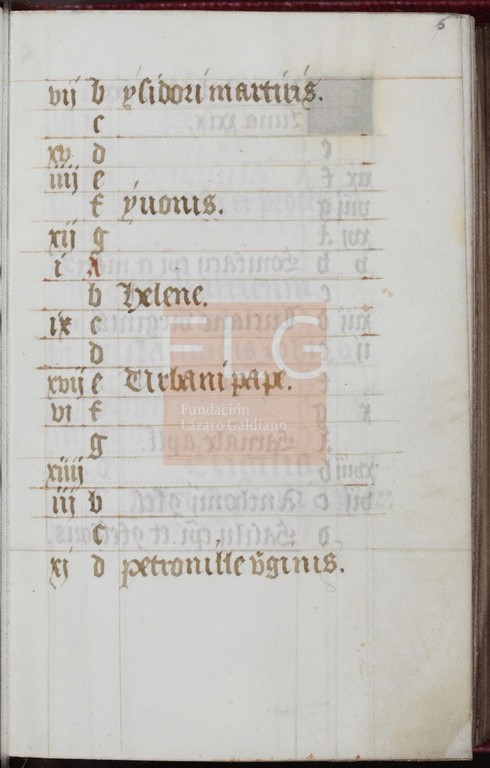 5
vij b ysidori martiris.
c
xv d
iiij e
f yuonis.
xij g
i A
b helene.
ix c
d
xvij e Urbani pape.
vi f
g
xiiij
iij b
c
xj d petronille v̄ginis.
FLG
Fundación
Lázaro Galdiano